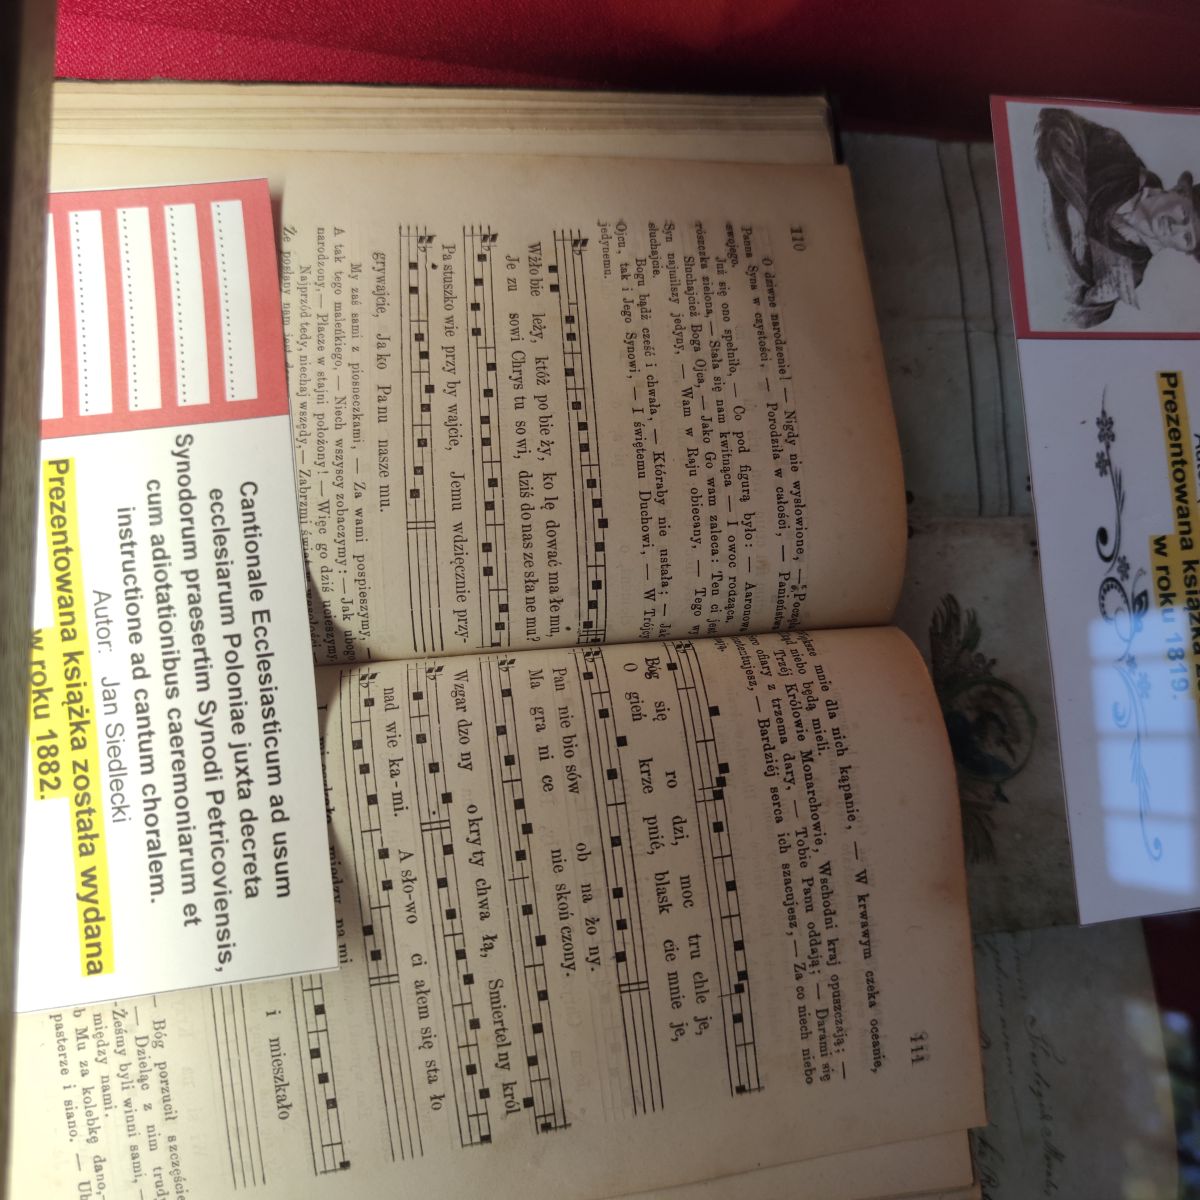 110
O dziwne narodzenie! — Nigdy nie wysłowione, —
Panna Syna w czystości, — Porodziła w całości, — Panieństwa
swojego.
Już się ono spełniło, — Co pod figurą było: — Aaronowa
rószczka zielona, — Stała się nam kwitnąca — I owoc rodząca.
Słuchajcież Boga Ojca, — Jako Go wam zaleca: Ten ci jest
Syn najmilszy jedyny, — Wam w Raju obiecany, — Tego wy
słuchajcie.
Bogu bądź cześć i chwała, — Któraby nie ustała; — Jak
Ojcu, tak i Jego Synowi, — I świętemu Duchowi, — W Trójcy
jedynemu.
Wżło bie leży, któż po bie ży, ko lę dować ma łe mu,
Je zu sowi Chrys tu so wi, dziś do nas ze sła ne mu?
Pa stuszko wie przy by wajcie, Jemu wdzięcznie przy-
grywajcie, Ja ko Pa nu nasze mu.
My zaś sami z piosneczkami, — Za wami pospieszymy, —
A tak tego maleńkiego, — Niech wszyscy zobaczymy: — Jak ubogo
narodzony, — Płacze w stajni położony! — Więc go dziś ucieszymy.
Najprzód tedy niechaj wszędy, — Zabrzmi
Że posłany nam
111
mnie dla nich kąpanie, — W krwawym czeka oceanie,
niebo będą mieli.
Trzéj Królowie Monarchowie, Wschodni kraj opuszczają; —
ofiary z trzema dary, — Tobie Panu oddają; — Darami się
— Bardziéj serca ich szacujesz, — Za co niech niebo
Bóg się ro dzi, moc tru chle je,
O gień krze pnié, blask cie mnie je,
Pan nie bio sów ob na żo ny.
Ma gra ni ce nie skoń czony.
Wzgar dzo ny o kry ty chwa łą, Smiertel ny król
nad wie ka - mi. A sło-wo ci ałem się sta ło
i mieszkało
między na mi.
— Bóg porzucił szczęście
— Dzieląc z nim trudy
Żeśmy byli winni sami, —
między nami.
b Mu za kolebkę dano,
pasterze i siano. — Ub
Cantionale Ecclesiasticum ad usum
ecclesiarum Poloniae juxta decreta
Synodorum praesertim Synodi Petricoviensis,
cum adiotationibus caeremoniarum et
instructione ad cantum choralem.
Autor: Jan Siedlecki
Prezentowana książka została wydana
w roku 1882.
Prezentowana książka
w roku 1819.